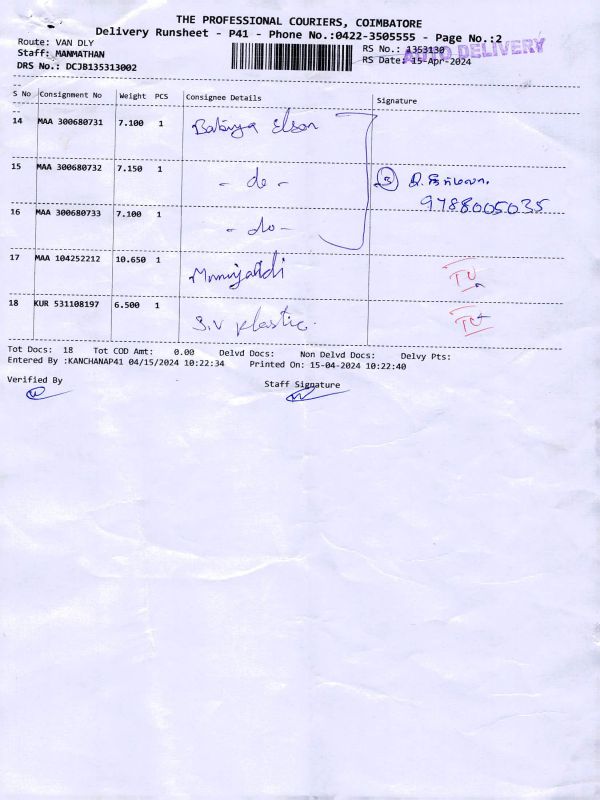 THE PROFESSIONAL COURIERS, COIMBATORE
Delivery Runsheet - P41 - Phone No.:0422-3505555 - Page No.:2
Route: VAN DLY
RS No.: 1353130
AUTO DELIVERY
Staff: MANMATHAN
RS Date: 15-Apr-2024
DRS No.: DCJB135313002
S No Consignment No Weight PCS Consignee Details Signature
14 MAA 300680731 7.100 1
15 MAA 300680732 7.150 1 - do -
③ 9788005035
16 MAA 300680733 7.100 1 - do -
17 MAA 104252212 10.650 1
18 KUR 531108197 6.500 1 S.V Plastic.
Tot Docs: 18 Tot COD Amt: 0.00 Delvd Docs: Non Delvd Docs: Delvy Pts:
Entered By :KANCHANAP41 04/15/2024 10:22:34 Printed On: 15-04-2024 10:22:40
Verified By Staff Signature